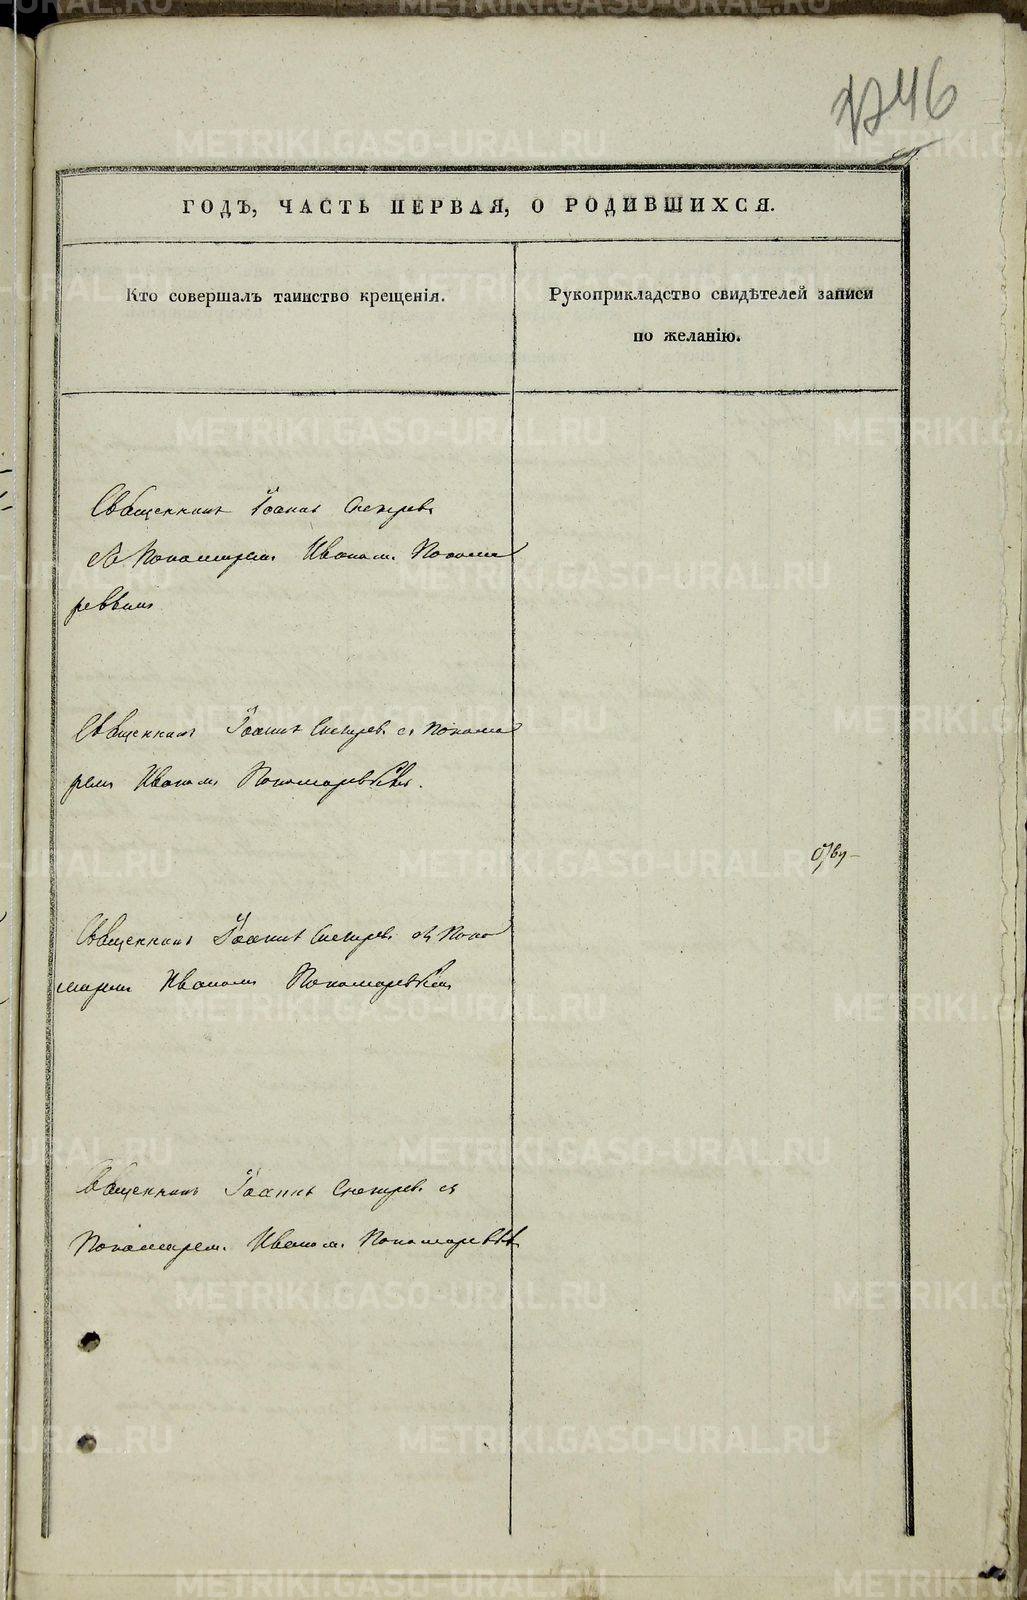 46
ГОДЪ, ЧАСТЬ ПЕРВАЯ, О РОДИВШИХСЯ.
Кто совершалъ таинство крещенія.
Рукоприкладство свидѣтелей записи
по желанію.
Священникъ Іоаннъ Снегирев
съ Пономарем Иваном Понома
ревымъ
Священникъ Іоаннъ Снегирев съ Понома
рем Иваном Пономаревымъ.
Священникъ Іоаннъ Снегирев съ Поно
марем Иваном Пономаревым
Священникъ Іоаннъ Снегирев съ
Пономарем Иваном Пономаревым
METRIKI.GASO-URAL.RU